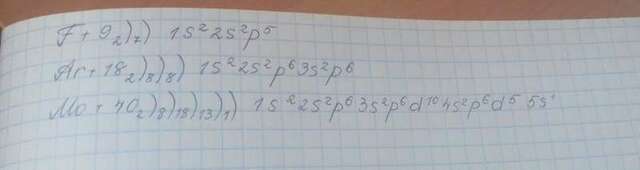 F + 9 2)7) 1s²2s²p⁵
Ar + 18 2)8)8) 1s²2s²p⁶3s²p⁶
Mo + 40 2)8)18)13)1) 1s²2s²p⁶3s²p⁶d¹⁰4s²p⁶d⁵5s¹